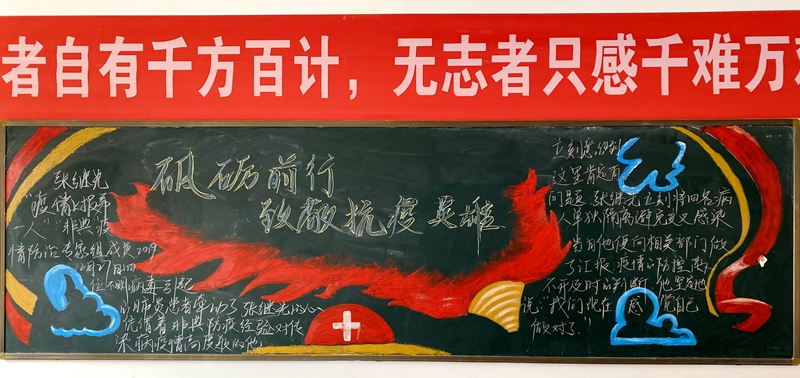 者自有千方百计，无志者只感千难万难
砥砺前行
致敬抗疫英雄
张继先
"疫情上报第
一人" 非典 疫
情防治专家组成员 2019
12月27日四
位不明病毒引起
的肺炎患者牵动了张继先的心
凭借着非典防疫经验对传
染病疫情高度敏的他
立刻意识到
这里背后有
问题 张继先立刻将四名病
人单独隔离避免交叉感染
当日他便向相关部门做
了汇报 疫情的防控离
不开及时的判断 他坚定地
说"我们现在 感觉自己
做对了."